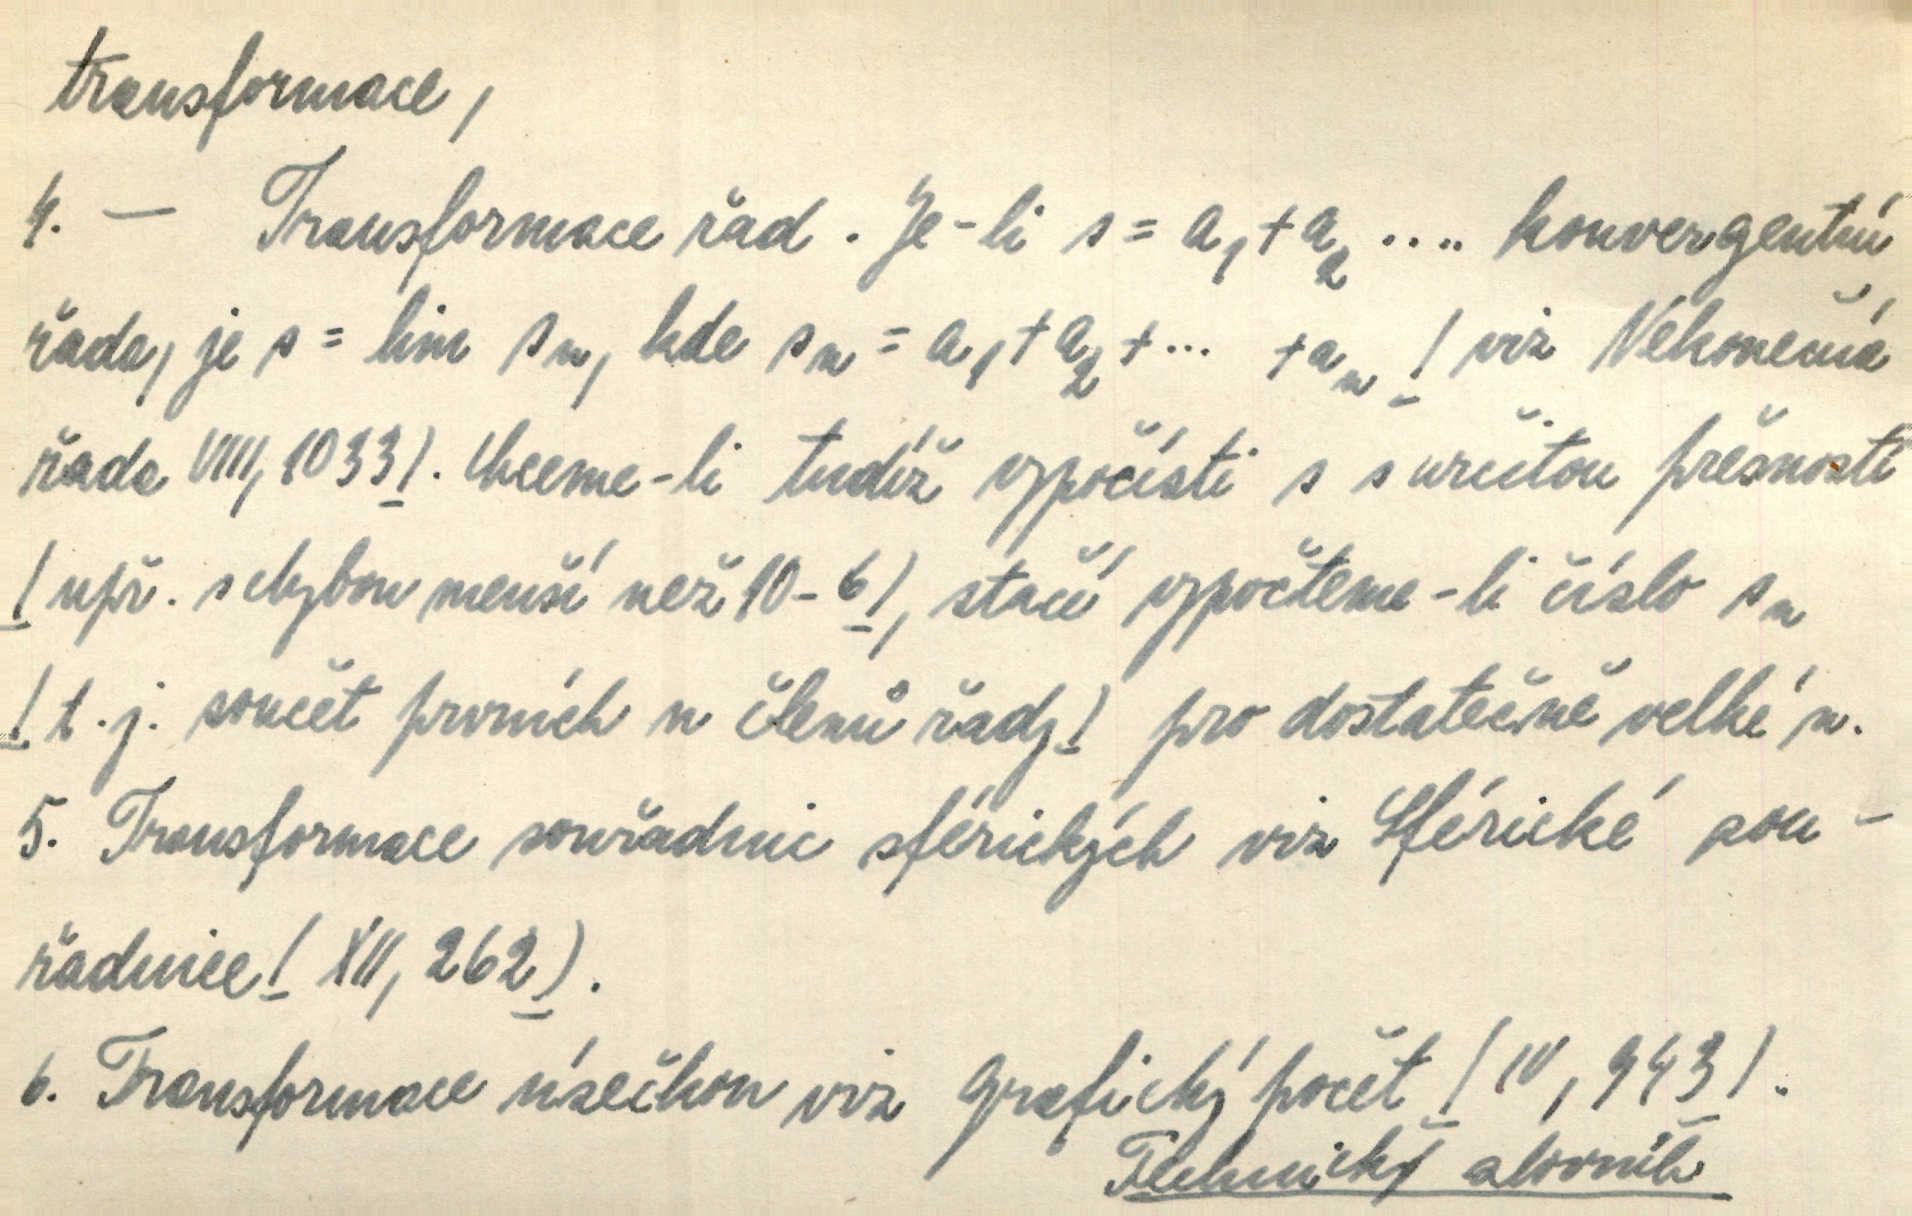 transformace,
4. — Transformace řad. Je-li s = a₁+a₂ .... konvergentní
řada, je s = lim sₙ, kde sₙ = a₁+a₂+... +aₙ / viz Nekonečná
řada VIII, 1033/. Chceme-li tudíž vypočísti s s určitou přesností
/ např. s chybou menší než 10-6/, stačí vypočteme-li číslo sₙ
/ t.j. součet prvních n členů řady/ pro dostatečně velké n.
5. Transformace souřadnic sférických viz Sférické sou-
řadnice/ XII, 262).
6. Transformace úsečkou viz Grafický počet / IV, 943/.
Technický slovník